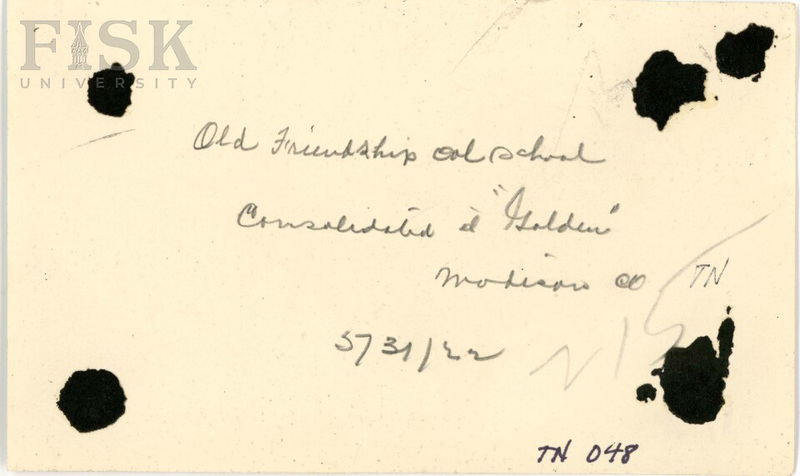 FISK
UNIVERSITY
Old Friendship col school
Consolidated "Golden"
Madison Co TN
5/31/22
TN 048